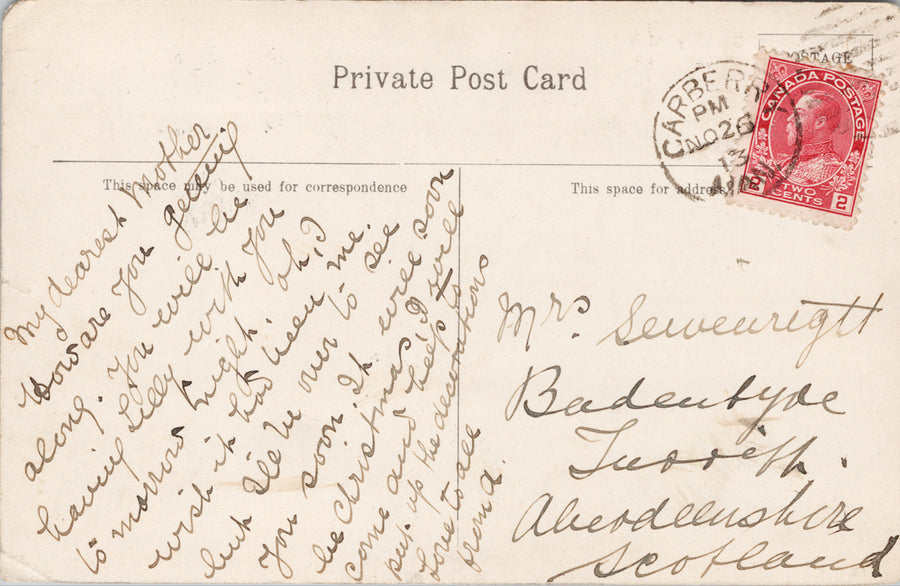 Private Post Card
POSTAGE
CARBERRY
PM
NO 26
13
MAN
CANADA POSTAGE
2 TWO CENTS 2
This space may be used for correspondence
This space for address
My dearest Mother
How are you getting
along. You will be
having Lilly with you
to morrow night. oh, I
wish it had been me.
but I'll be over to see
you soon It will soon
be Christmas, I will
come and help to
put up the decorations
love to all
from A.
Mrs. Sewenrigtt
Badentyde
Turriff.
Aberdeenshire
Scotland